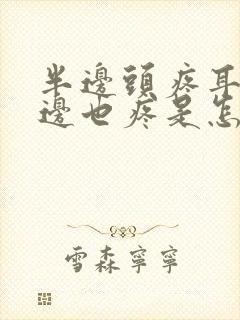 半邊頭疼耳
邊也疼是怎
雪森寧寧